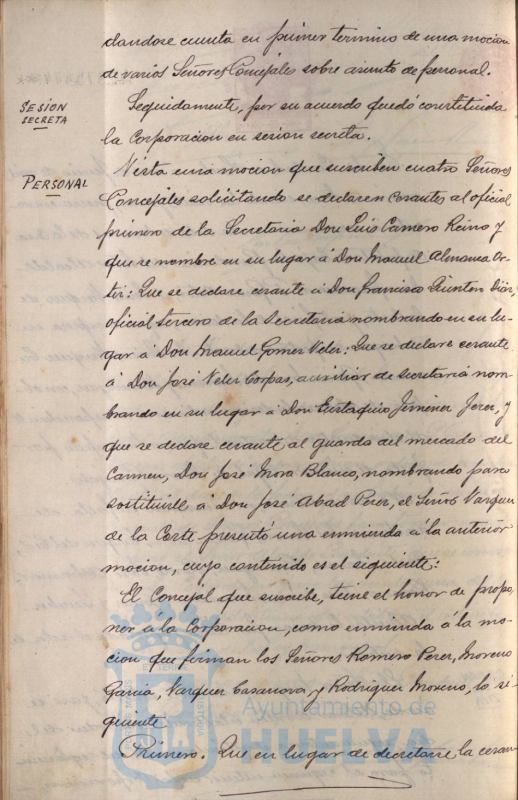 dandose cuenta en primer termino de una mocion
de varios Señores Concejales sobre asunto de personal.
SESION
SECRETA
Seguidamente, por su acuerdo quedó constituida
la Corporacion en sesion secreta.
PERSONAL
Vista una mocion que suscriben cuatro Señores
Concejales solicitando se declaren cesantes al oficial
primero de la Secretaria Don Luis Camero Reino y
que se nombre en su lugar á Don Manuel Almansa Or-
tiz: Que se declare cesante á Don Francisco Quinton Diaz,
oficial tercero de la Secretaria nombrando en su lu-
gar á Don Manuel Gomez Velez: Que se declare cesante
á Don José Velez Corpas, auxiliar de secretaria nom-
brando en su lugar á Don Eustaquio Jimenez Jerez, y
que se declare cesante al guarda del mercado del
Carmen, Don José Mora Blanco, nombrando para
sostituirle á Don José Abad Perez, el Señor Vazquez
de la Corte presentó una enmienda á la anterior
mocion, cuyo contenido es el siguiente:
El Concejal que suscribe, tiene el honor de propo
ner á la Corporacion, como enmienda á la mo-
cion que firman los Señores Romero Perez, Moreno
Garcia, Vazquez Casanova y Rodriguez Moreno, lo si-
guiente
Primero. Que en lugar de decretarse la cesan-
Ayuntamiento de
HUELVA